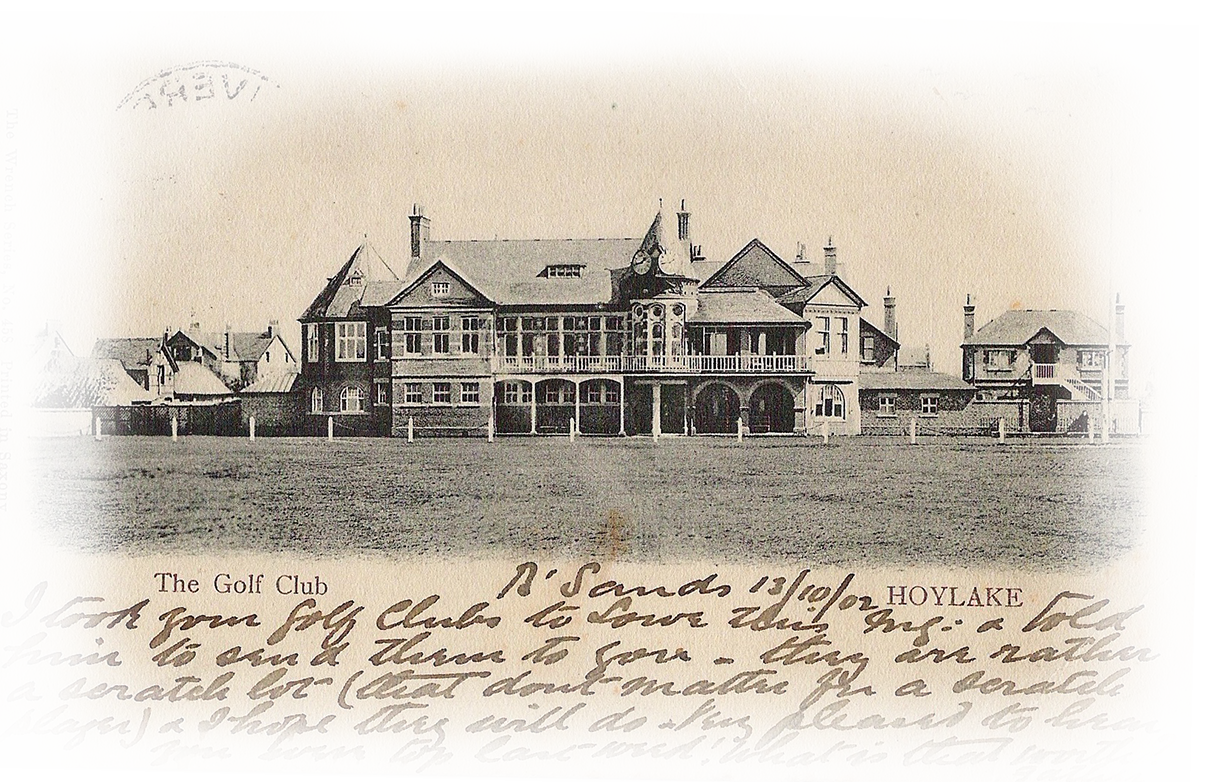 The Golf Club
HOYLAKE
R' Sands 13/10/02
I took your Golf Clubs to Lowe this mg: & told
him to send them to you - they are rather
a scratch lot (that dont matter for a scratch
player) & I hope they will do. Very pleased to hear
you were top last week! What is that worth